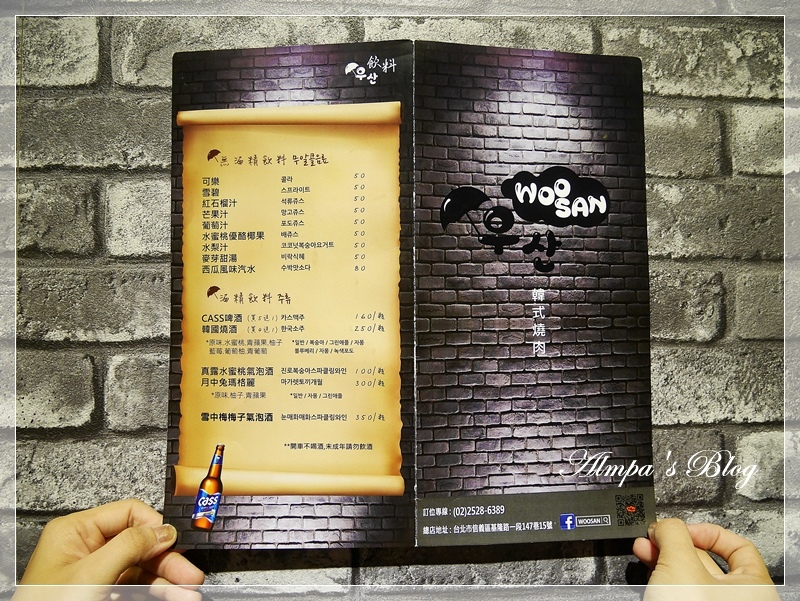 우산 飲料
無酒精飲料 무알콜음료
可樂 콜라 50
雪碧 스프라이트 50
紅石榴汁 석류쥬스 50
芒果汁 망고쥬스 50
葡萄汁 포도쥬스 50
水蜜桃優酪椰果 배쥬스 50
水梨汁 코코넛복숭아요거트 50
麥芽甜湯 비락식혜 50
西瓜風味汽水 수박맛소다 80
酒精飲料 주류
CASS啤酒 (買5送1) 카스맥주 160/瓶
韓國燒酒 (買4送1) 한국소주 250/瓶
*原味,水蜜桃,青蘋果,柚子 *일반 / 복숭아 / 그린애플 / 자몽
藍莓,葡萄柚,青葡萄 블루베리 / 자몽 / 녹색포도
真露水蜜桃氣泡酒 진로복숭아스파클링와인 300/瓶
月中兔瑪格麗 마가렛토끼개월 300/瓶
*原味,柚子,青蘋果 *일반 / 자몽 / 그린애플
雪中梅梅子氣泡酒 눈매화매화스파클링와인 350/瓶
**開車不喝酒,未成年請勿飲酒
Cass
WOOSAN
우산
韓式燒肉
Almpa's Blog
訂位專線 : (02)2528-6389
總店地址 : 台北市信義區基隆路一段147巷15號
f WOOSAN